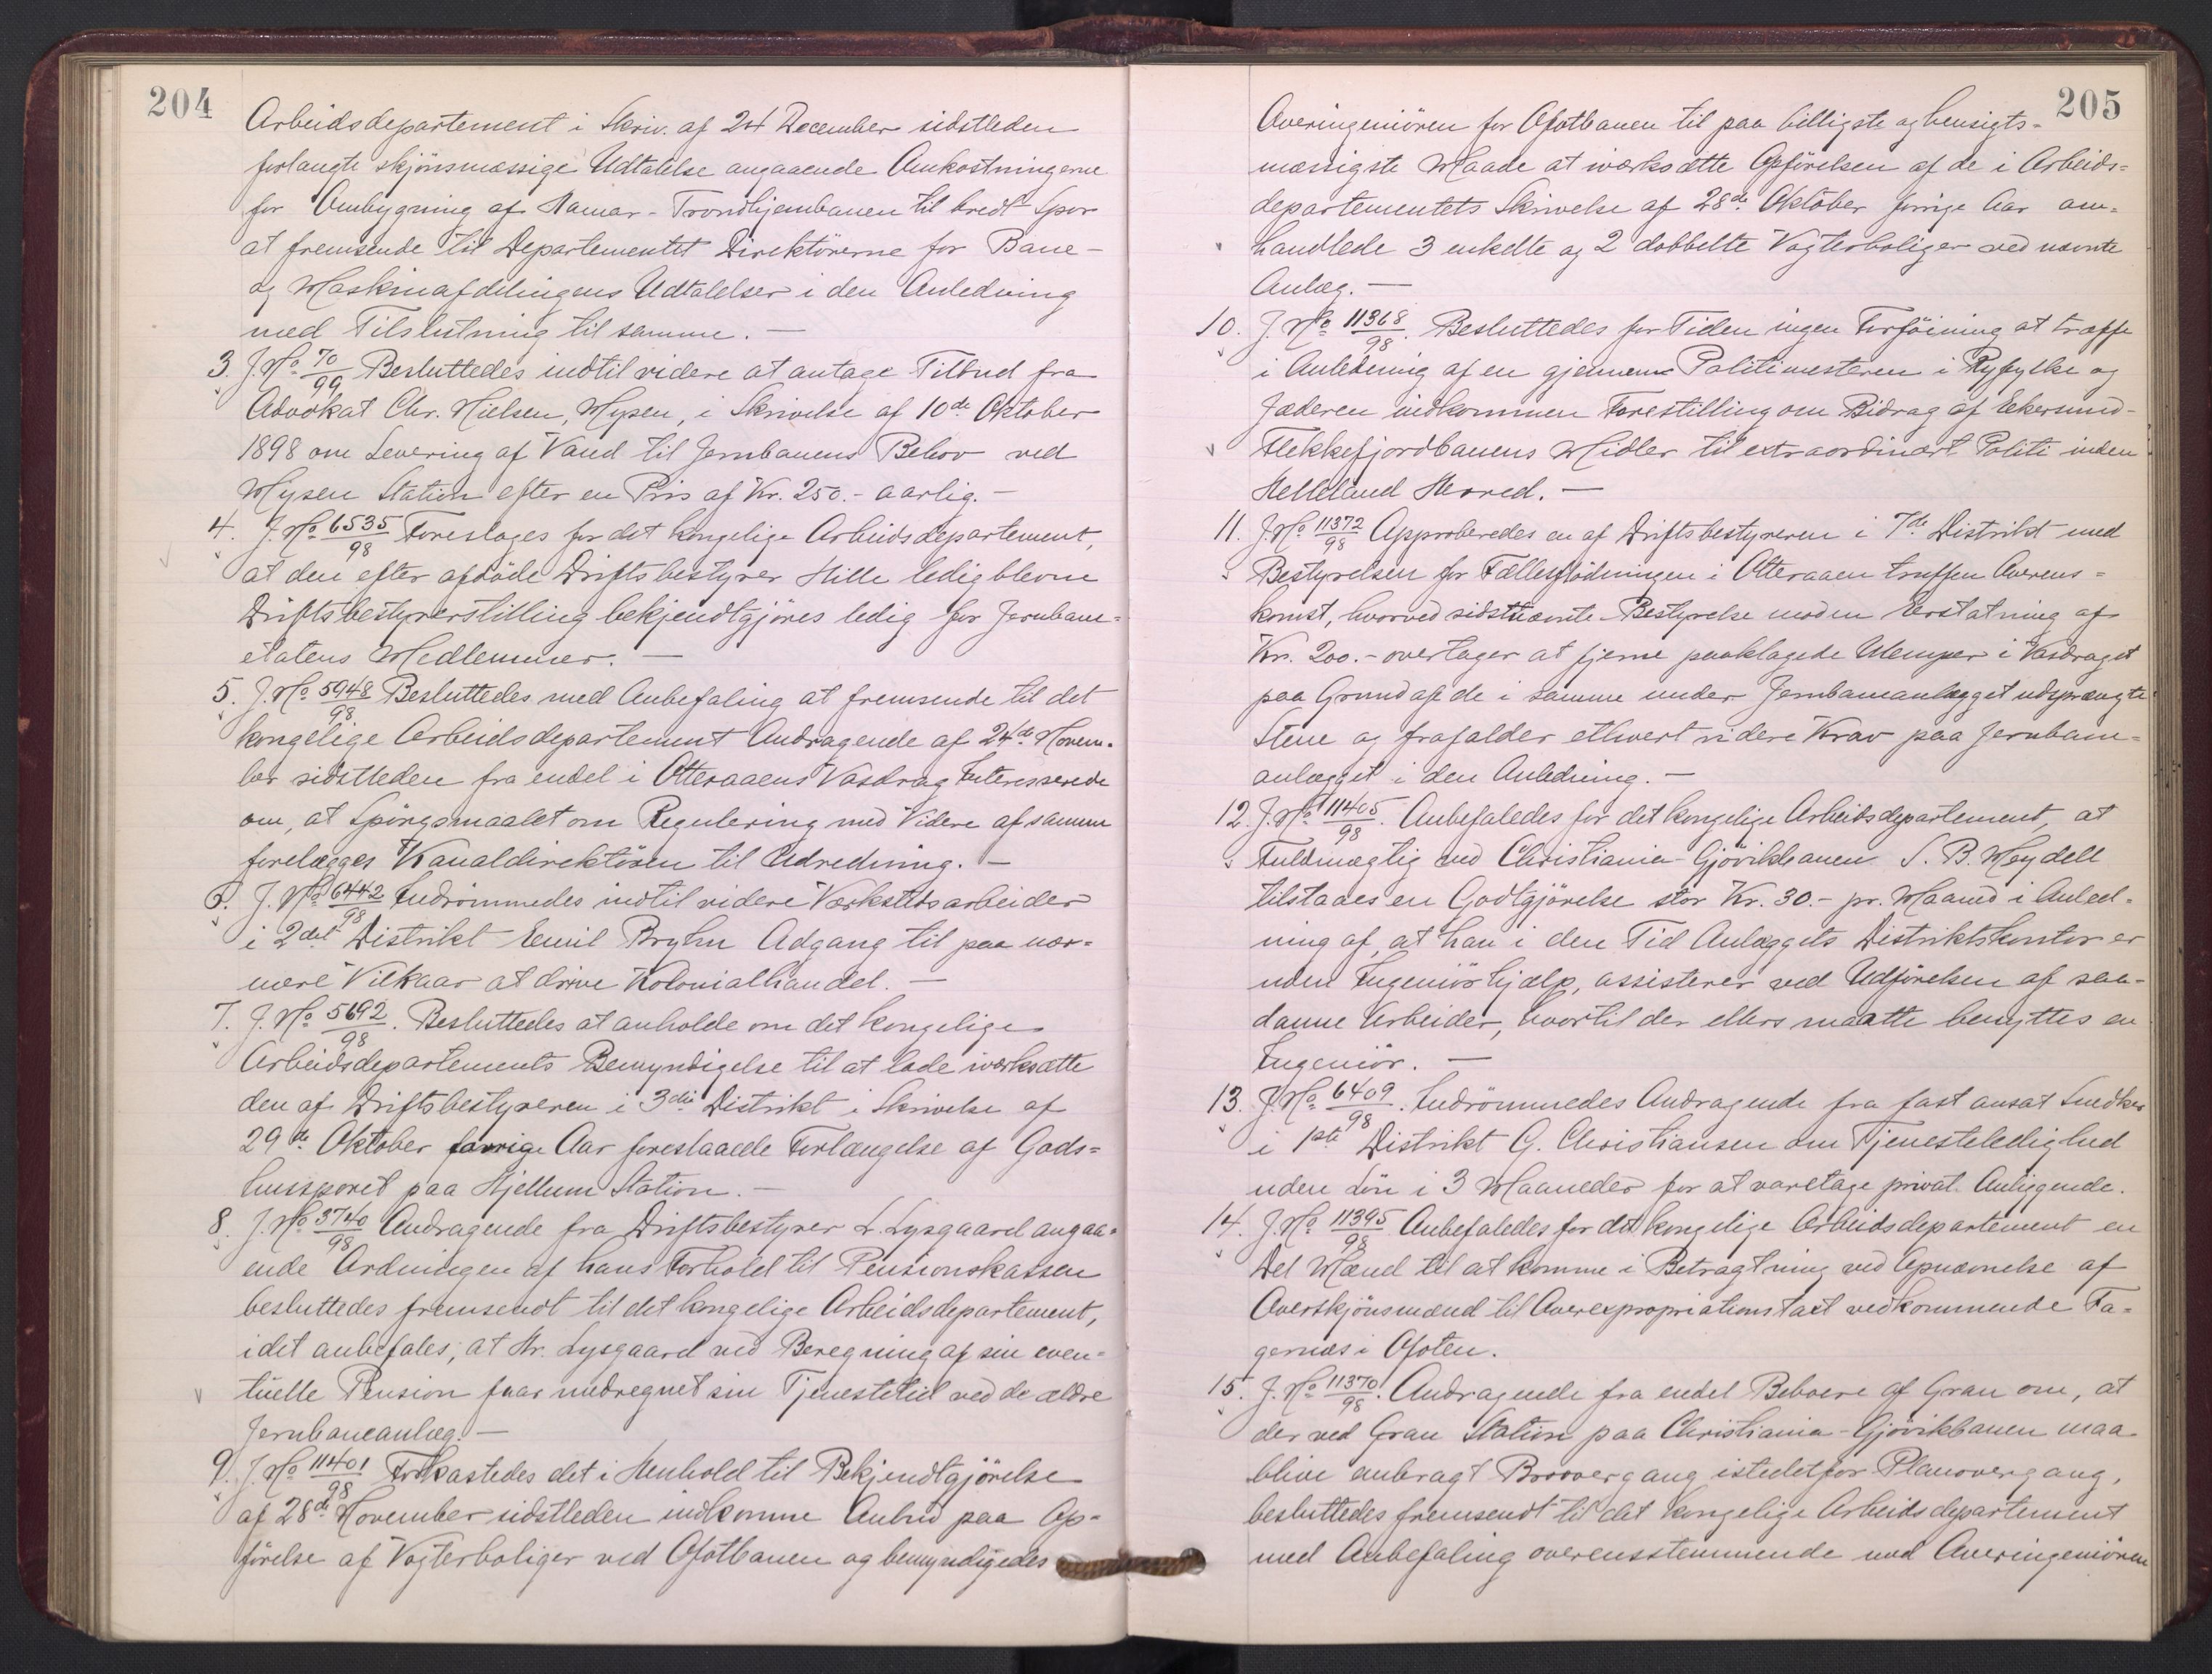 204
Arbeidsdepartement i Skriv. af 24 December sidstleden
forlangte skjönsmæssige Udtalelse angaaende Omkostningerne
for Ombygning af Hamar-Trondhjembanen til bredt Spor
at fremsende til Departementet Direktörerne for Bane-
og Maskinafdelingens Udtalelser i den Anledning
med Tilslutning til samme. —
3. J. No 70/99 Besluttedes indtil videre at antage Tilbud fra
Advokat Chr. Nielsen, Mysen, i Skrivelse af 10de Oktober
1898 om Levering af Vand til Jernbanens Behov ved
Mysen Station efter en Pris af Kr. 250.- aarlig. —
4. J. No 6535/98 Foreslages for det kongelige Arbeidsdepartement,
at den efter afdöde Driftsbestyrer Hille ledigblevne
Driftsbestyrerstilling bekjendtgjöres ledig for Jernbane=
etatens Medlemmer. —
5. J. No 5948/98 Besluttedes med Anbefaling at fremsende til det
kongelige Arbeidsdepartement Andragende af 24de Novem-
ber sidstleden fra endel i Otteraaens Vasdrag Interesserede
om, at Spörgsmaalet om Regulering med Videre af samme
forelægges Kanaldirektören til Udredning. —
6. J. No 6442/98 Indrömmedes indtil videre Værkstedsarbeider
i 2det Distrikt Emil Bryhn Adgang til paa nær-
mere Vilkaar at drive Kolonialhandel. —
7. J. No 5692/98. Besluttedes at anholde om det kongelige
Arbeidsdepartements Bemyndigelse til at lade iværksætte
den af Driftsbestyreren i 3die Distrikt i Skrivelse af
29de Oktober forrige Aar foreslaaede Forlængelse af Gods=
husssporet paa Hjellum Station. —
8. J. No 3740/98 Andragende fra Driftsbestyrer L. Lysgaard angaa=
ende Ordningen af hans Forhold til Pensionskassen
besluttedes fremsendt til det kongelige Arbeidsdepartement,
idet anbefales, at Hr. Lysgaard ved Beregning af sin even=
tuelle Pension faar medregnet sin Tjenestetid ved de ældre
Jernbaneanlæg. —
9. J. No 11401/98 Forkastedes det i Henhold til Bekjendtgjörelse
af 28de November sidstleden indkomne Anbud paa Op=
förelse af Vogterboliger ved Ofotbanen og bemyndigedes
205
Overingeniören for Ofotbanen til paa billigste og hensigts-
mæssigste Maade at iværksætte Opförelsen af de i Arbeids=
departementets Skrivelse af 28de Oktober forrige Aar om=
handlede 3 enkelte og 2 dobbelte Vogterboliger ved nævnte
Anlæg. —
10. J. No 11368/98. Besluttedes for Tiden ingen Forföining at træffe
i Anledning af en gjennem Politimesteren i Ryfylke og
Jæderen indkommen Forestilling om Bidrag af Ekersund-
Flekkefjordbanens Midler til extraordinært Politi inden
Helleland Herred. —
11. J. No 11372/98 Approberedes en af Driftsbestyreren i 7de Distrikt med
Bestyrelsen for Fællesflödningen i Otteraaen truffen Overens=
komst, hvorved sidstnævnte Bestyrelse mod en Erstatning af
Kr. 200.- overtager at fjerne paaklagede Ulemper i Vasdraget
paa Grund af de i samme under Jernbaneanlægget udsprængte
Stene og frafalder ethvert videre Krav paa Jernbane=
anlægget i den Anledning. —
12. J. No 11405/98. Anbefaledes for det kongelige Arbeidsdepartement, at
Fuldmægtig ved Christiania-Gjövikbanen S. B. Meydell
tilstaaes en Godtgjörelse stor Kr. 30.- pr. Maaned i Anled-
ning af, at han i den Tid Anlæggets Distriktskontor er
uden Ingeniörhjælp, assisterer ved Udförelsen af saa-
danne Arbeider, hvortil der ellers maatte benyttes en
Ingeniör. —
13. J. No 6409/98. Indrömmedes Andragende fra fast ansat Snedker
i 1ste Distrikt G. Christiansen om Tjenesteledighed
uden Lön i 3 Maaneder for at varetage privat Anliggende.
14. J. No 11395/98 Anbefaledes for det kongelige Arbeidsdepartement en
Del Mænd til at komme i Betragtning ved Opnævnelse af
Overskjönsmænd til Overexpropriationstaxt vedkommende Fa=
gernæs i Ofoten.
15. J. No 11370/98. Andragende fra endel Beboere af Gran om, at
der ved Gran Station paa Christiania-Gjövikbanen maa
blive anbragt Broovergang istedetfor Planovergang,
besluttedes fremsendt til det kongelige Arbeidsdepartement
med Anbefaling overensstemmende med Overingeniören